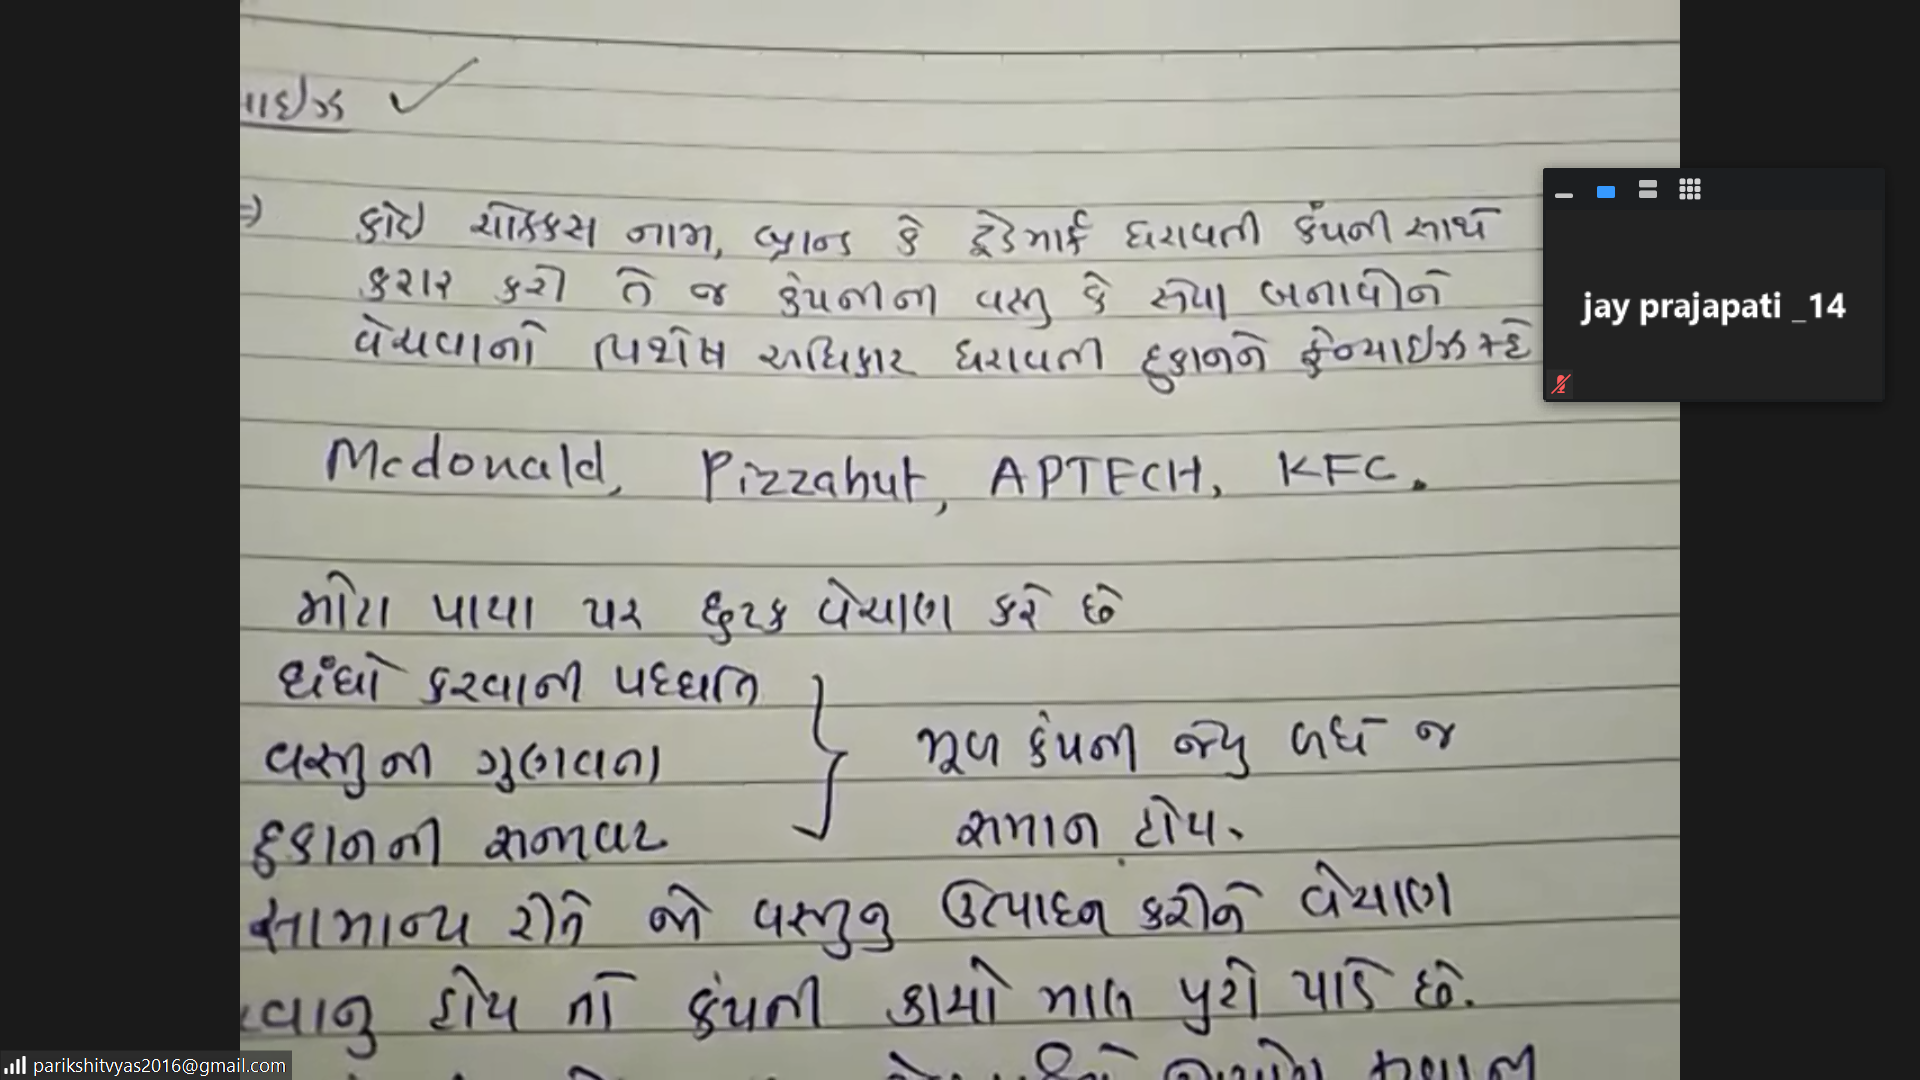 ાઇઝ
=) કોઇ ચોક્કસ નામ, બ્રાન્ડ કે ટ્રેડમાર્ક ધરાવતી કંપની સાથે
કરાર કરી તે જ કંપનીની વસ્તુ કે સેવા બનાવીને
વેચવાનો વિશેષ અધિકાર ધરાવતી દુકાનને ફ્રેન્ચાઇઝ કહે
Mcdonald, Pizzahut, APTECH, KFC.
મોટા પાયા પર છુટક વેચાણ કરે છે
ધંધો કરવાની પધ્ધતિ
વસ્તુની ગુણવતા
દુકાનની સજાવટ
મૂળ કંપની જેવુ બધે જ
સમાન હોય.
સામાન્ય રીતે જો વસ્તુનુ ઉત્પાદન કરીને વેચાણ
વાનુ હોય તો કંપની કાચો માલ પુરો પાડે છે.
jay prajapati _14
parikshitvyas2016@gmail.com